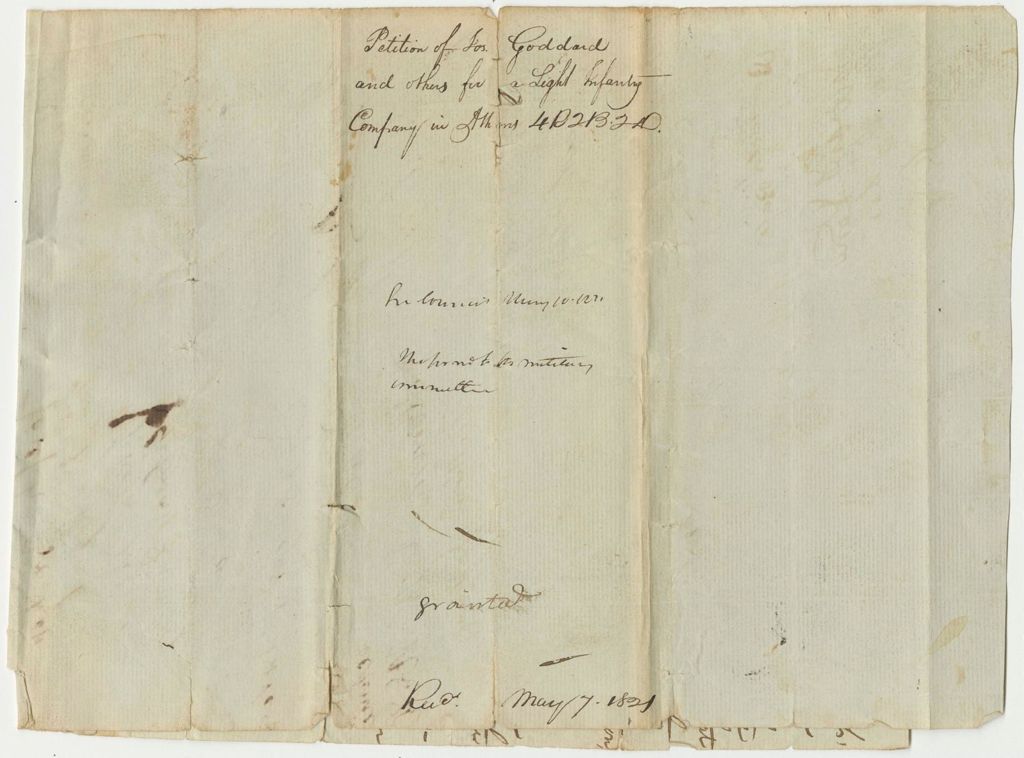 Petition of Jos. Goddard
and others for a Light Infanty
Company in Athens 4R2B.2D.
In Council May 10. 1821
the military
committee
granted
Recd. May 7. 1821